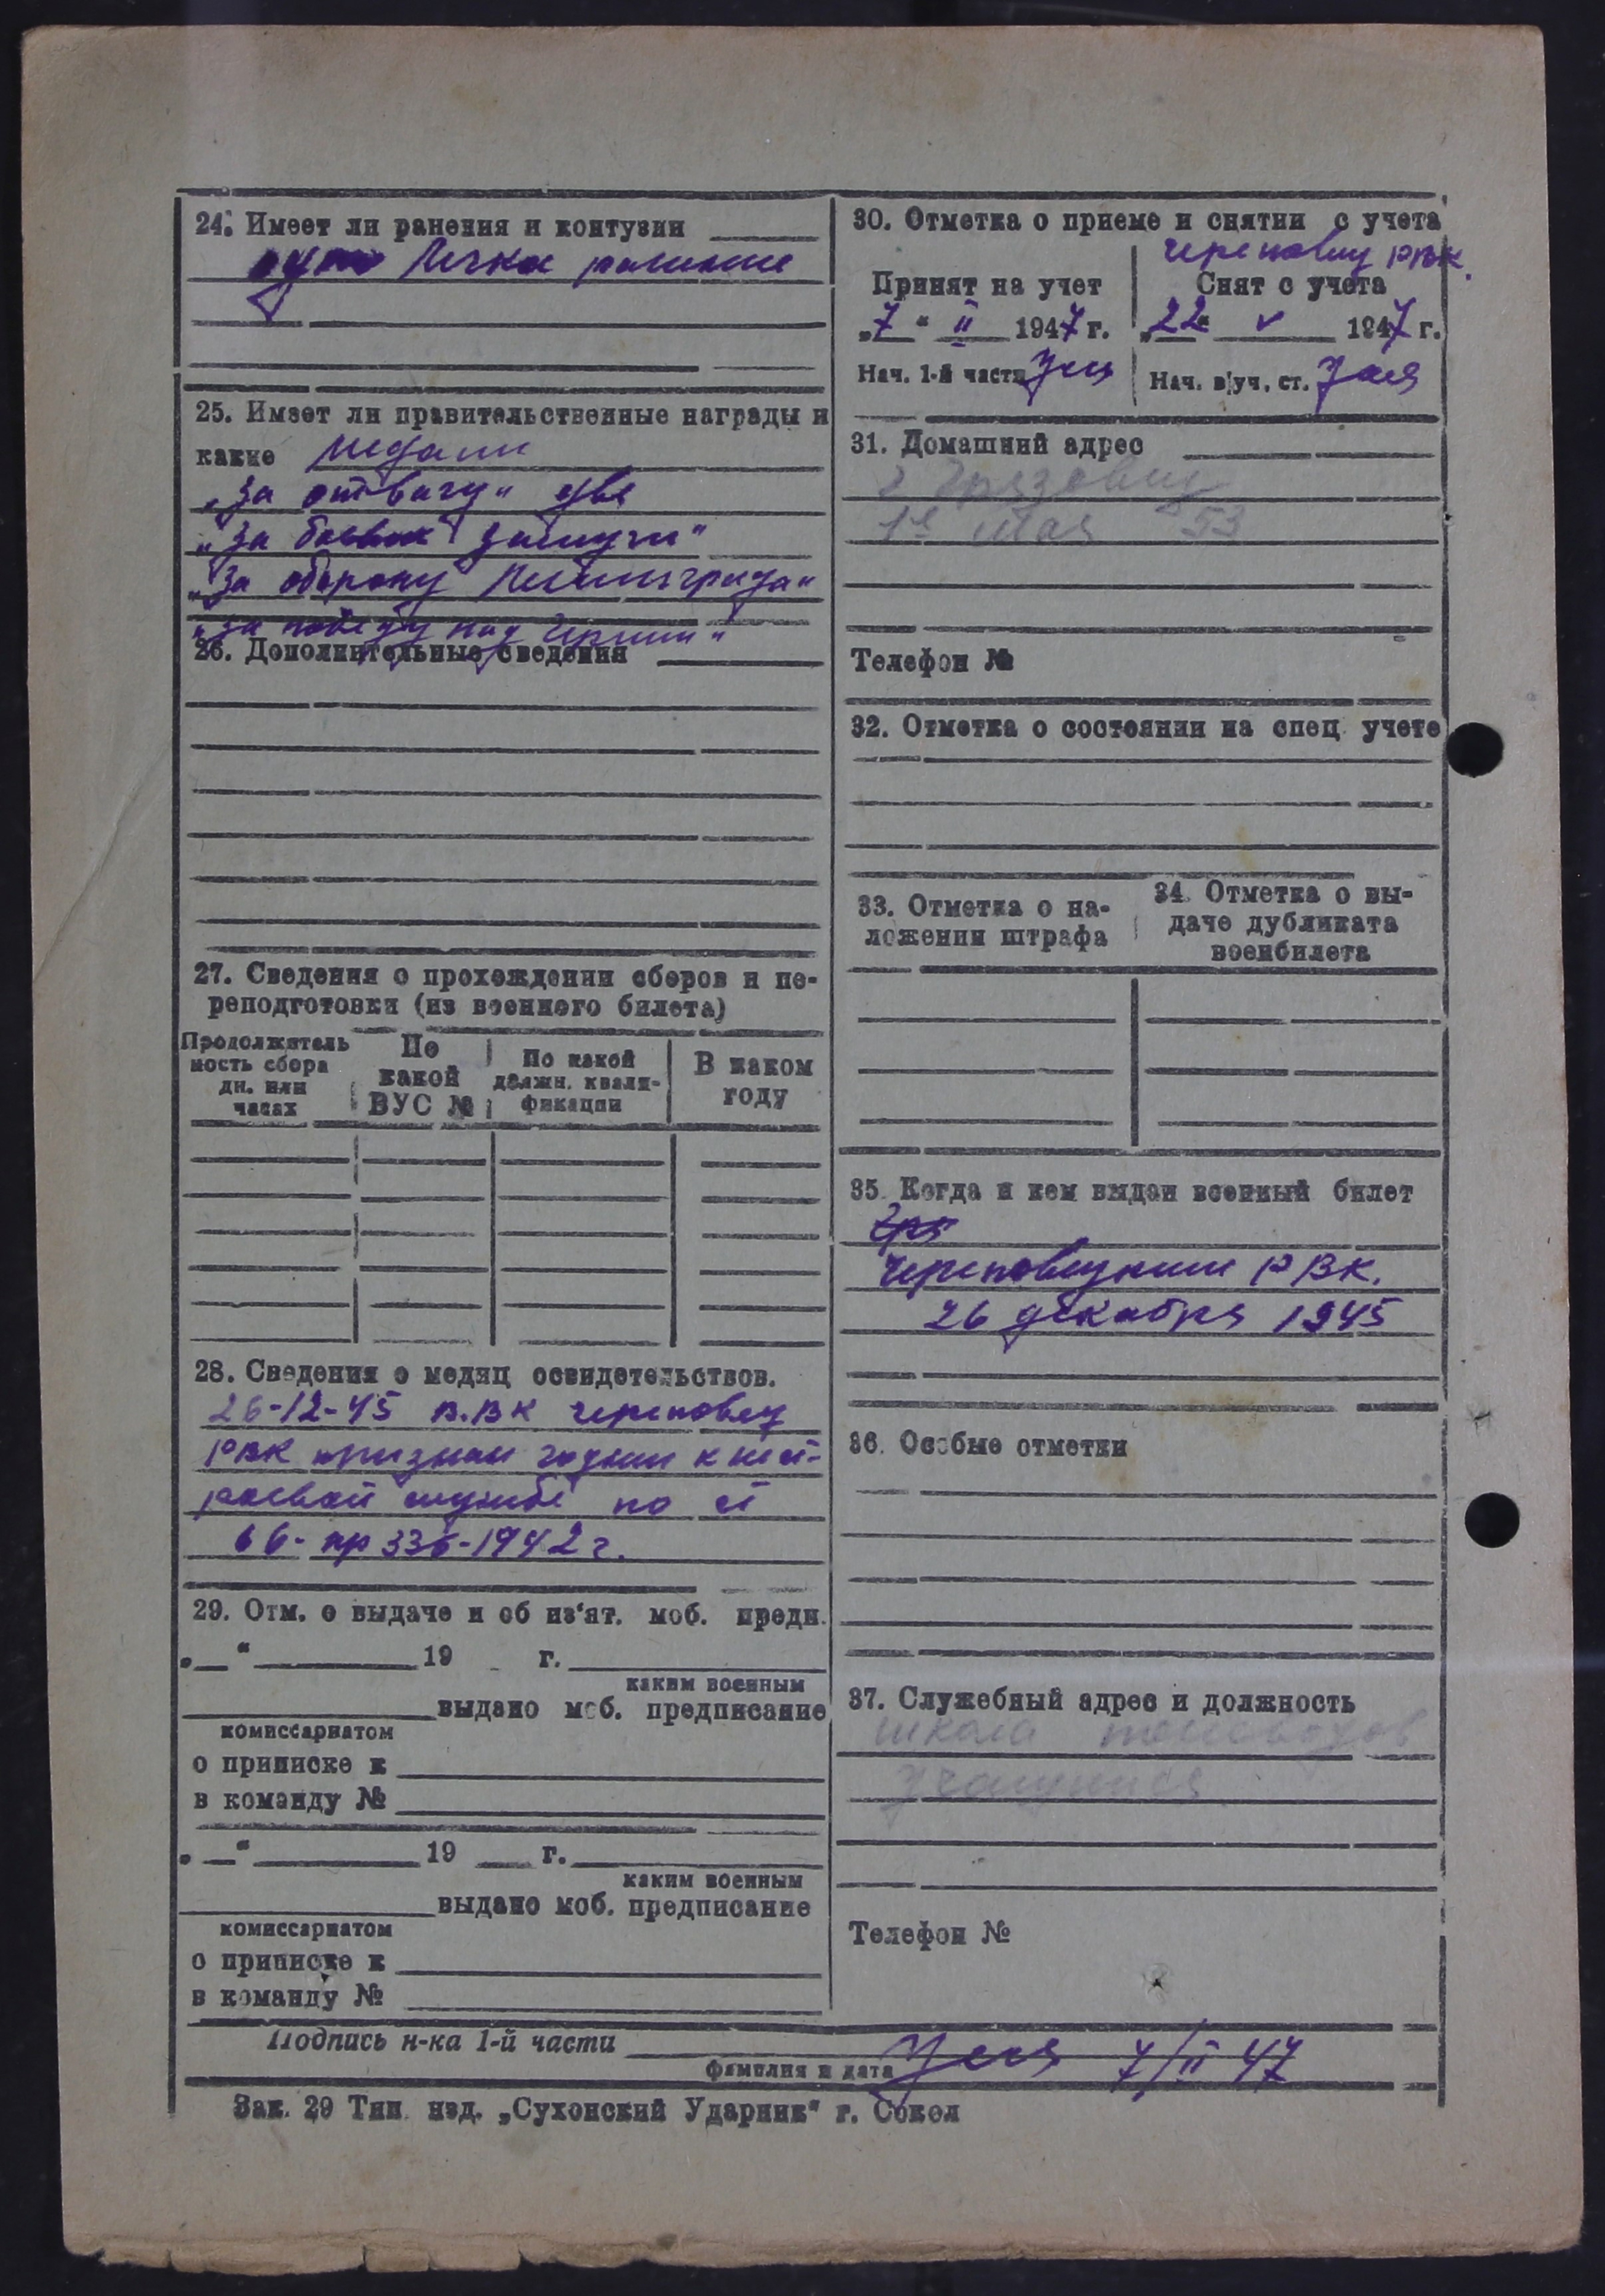 24. Имеет ли ранения и контузии
одно легкое ранение
25. Имеет ли правительственные награды и
какие медали
„За отвагу“ две
„За боевые заслуги“
„За оборону Ленинграда“
„За победу над Герман“
26. Дополнительные сведения
27. Сведения о прохождении сборов и пе-
реподготовки (из военного билета)
Продолжитель
ность сбора
дн. или
часах
По
какой
ВУС №
По какой
должн. квали-
фикации
В каком
году
28. Сведения о медиц освидетельствов.
26-12-45 В.ВК Череповец
РВК признан годным к нест-
роевой службе по ст
66- пр 336-1942 г.
29. Отм. о выдаче и об из'ят. моб. предп.
„ “ 19 г.
каким военным
выдано моб. предписание
комиссариатом
о приписке к
в команду №
„ “ 19 г.
каким военным
выдано моб. предписание
комиссариатом
о приписке к
в команду №
30. Отметка о приеме и снятии с учета
Череповец РВК.
Принят на учет
„7“ II 1947 г.
Нач. 1-й части
Снят с учета
„22“ V 1947 г.
Нач. в/уч. ст.
31. Домашний адрес
г Грязовец
1е Мая 53
Телефон №
32. Отметка о состоянии на спец. учете
33. Отметка о на-
ложении штрафа
34. Отметка о вы-
даче дубликата
военбилета
35. Когда и кем выдан военный билет
Гря
Череповецким РВК.
26 декабря 1945
36. Особые отметки
37. Служебный адрес и должность
школа
учащийся
Телефон №
Подпись н-ка 1-й части
7/II 47
фамилия и дата
Зак. 29 Тип. изд. „Сухонский Ударник“ г. Сокол